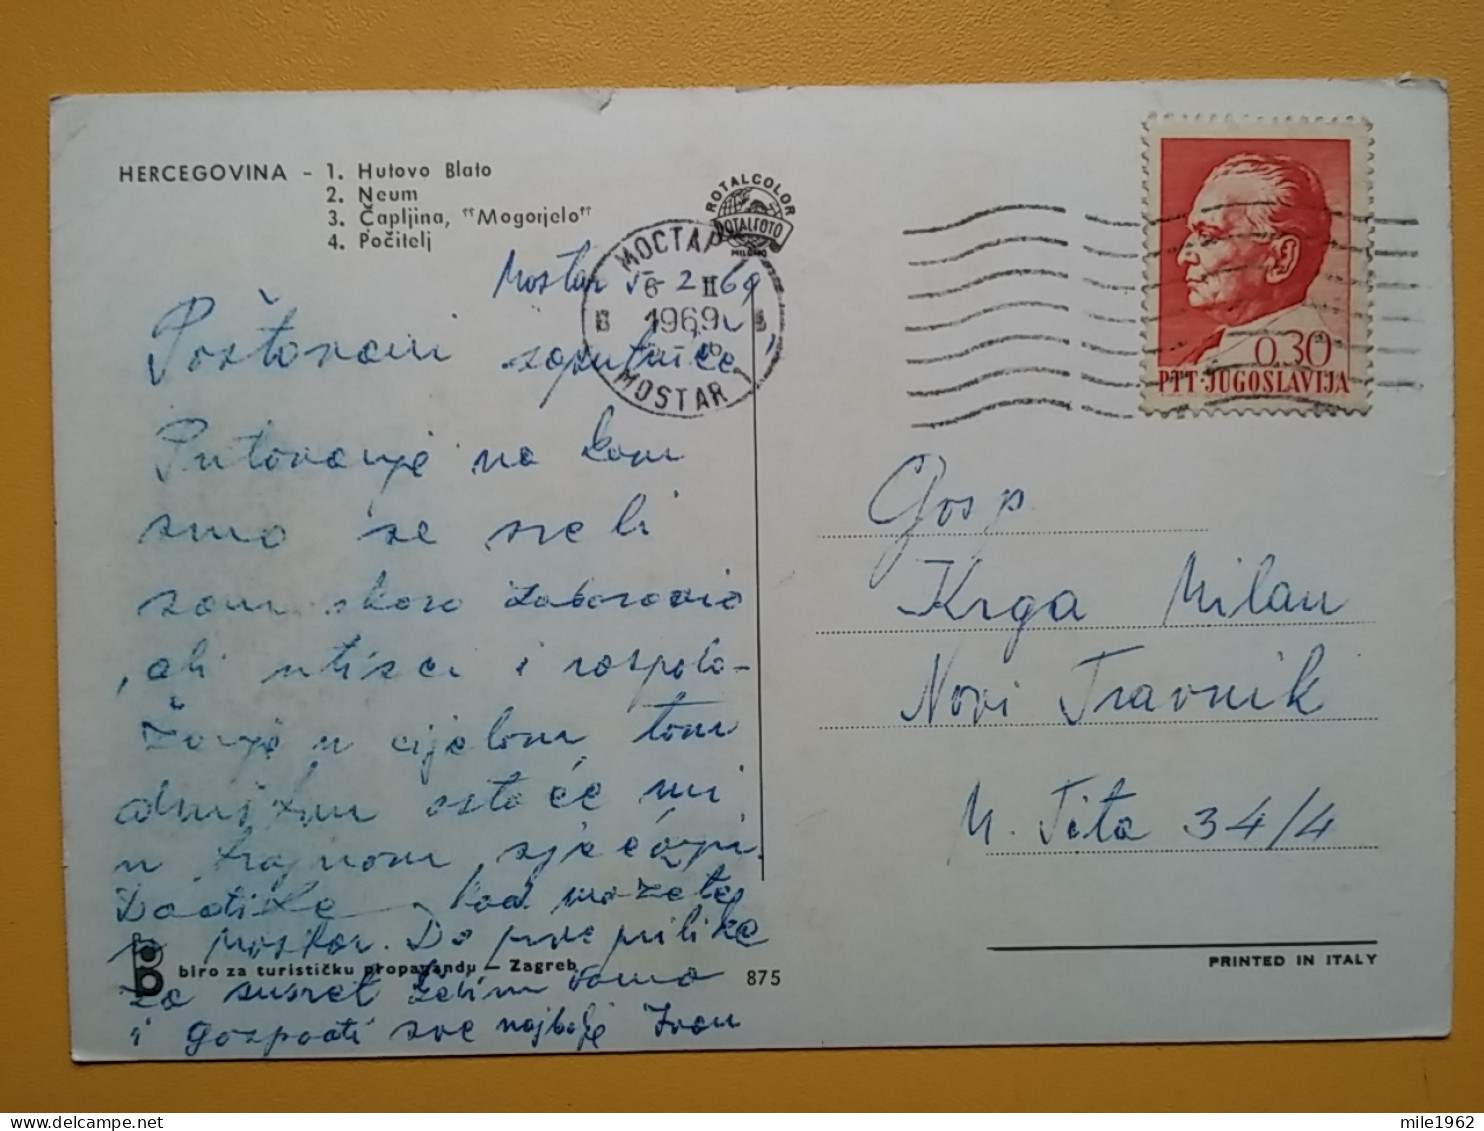 HERCEGOVINA - 1. Hutovo Blato
2. Neum
3. Čapljina, "Mogorjelo"
4. Počitelj
ROTALCOLOR
ROTALFOTO
MILANO
МОСТАР
6 II
1969
MOSTAR 1
0,30
PTT-JUGOSLAVIJA
Mostar 5-2-69
Poštovani saputniče,
Putovanje na kom
smo se sreli
sam skoro zaboravio
ali utisci i raspolo-
ženje u cijelom tom
društvu ostaće mi
u trajnom sjećanju.
Dođite kad možete
u Mostar. Do prve prilike
za susret želim vama
i gospođi sve najbolje Ivan
Gosp.
Krga Milan
Novi Travnik
M. Tita 34/4
biro za turističku propagandu - Zagreb
875
PRINTED IN ITALY
mile1962